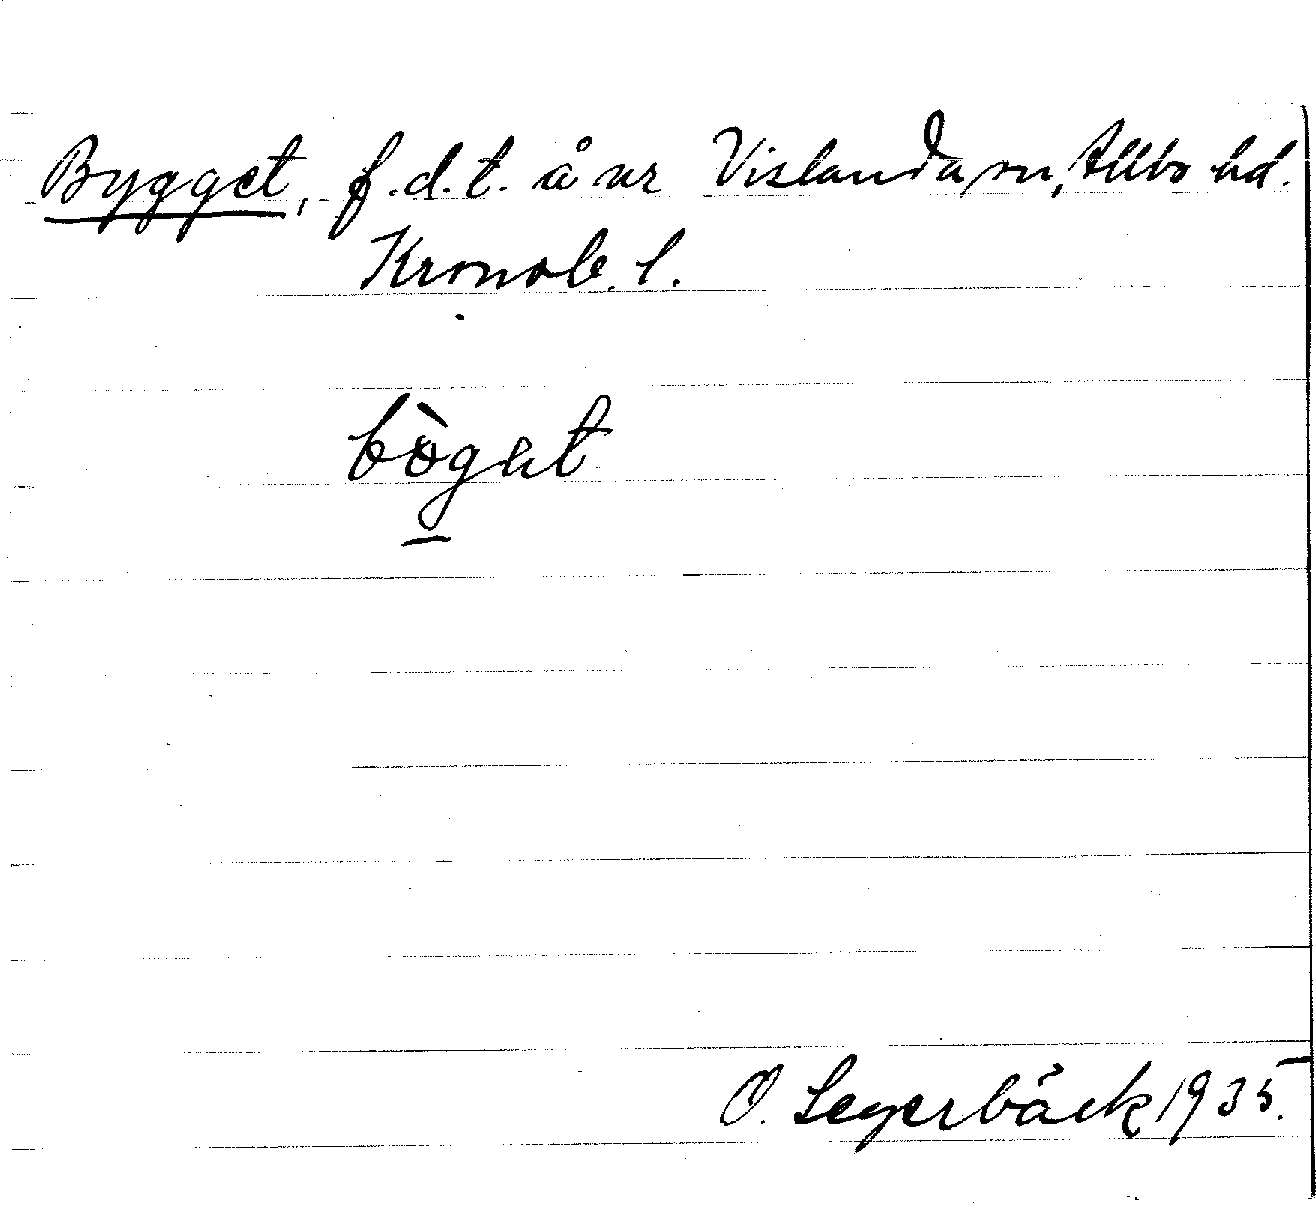 Bygget, f.d.t. å nr Vislanda sn, Allbo hd.
Kronob. l.
bògat
O. Segerbäck 1935.